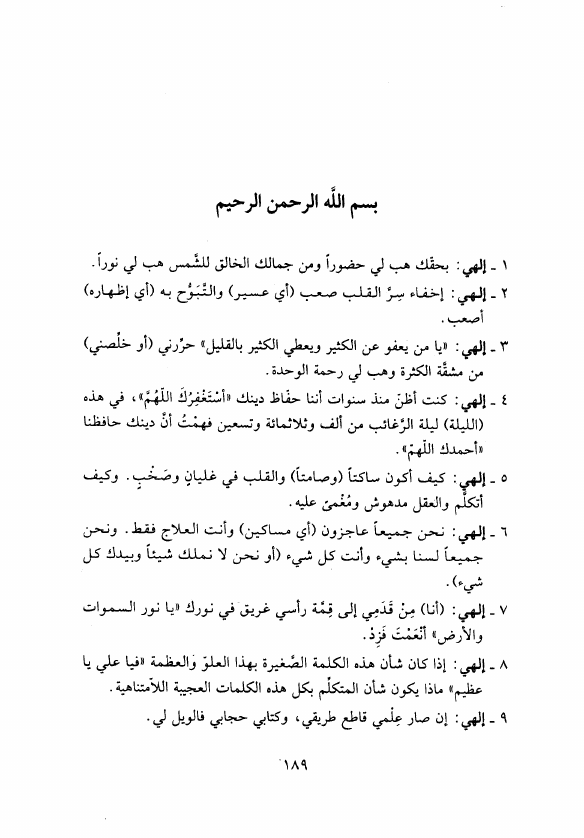 بسم اللَّه الرحمن الرحيم
١ ـ إلهي: بحقّك هب لي حضوراً ومن جمالك الخالق للشَّمس هب لي نوراً.
٢ ـ إلهي: إخفاء سِرَّ القلب صعب (أي عسير) والتَّبَوُّح به (أي إظهاره)
أصعب.
٣ ـ إلهي: «يا من يعفو عن الكثير ويعطي الكثير بالقليل» حرّرني (أو خلّصني)
من مشقَّة الكثرة وهب لي رحمة الوحدة.
٤ ـ إلهي: كنت أظنّ منذ سنوات أننا حفّاظ دينك «أسْتَغْفِرُكَ اللّهُمَّ»، في هذه
(الليلة) ليلة الرَّغائب من ألف وثلاثمائة وتسعين فهمْتُ أنَّ دينك حافظنا
«أحمدك اللّهمّ».
٥ ـ إلهي: كيف أكون ساكتاً (وصامتاً) والقلب في غليانٍ وصَخْبٍ. وكيف
أتكلَّم والعقل مدهوش ومُغْمىً عليه.
٦ ـ إلهي: نحن جميعاً عاجزون (أي مساكين) وأنت العلاج فقط. ونحن
جميعاً لسنا بشيء وأنت كل شيء (أو نحن لا نملك شيئاً وبيدك كل
شيء).
٧ ـ إلهي: (أنا) مِنْ قَدَمِي إلى قِمَّة رأسي غريق في نورك «يا نور السموات
والأرض» أنْعَمْتَ فَزِدْ.
٨ ـ إلهي: إذا كان شأن هذه الكلمة الصَّغيرة بهذا العلوّ والعظمة «فيا علي يا
عظيم» ماذا يكون شأن المتكلّم بكل هذه الكلمات العجيبة اللاّمتناهية.
٩ ـ إلهي: إن صار عِلْمي قاطع طريقي، وكتابي حجابي فالويل لي.
١٨٩